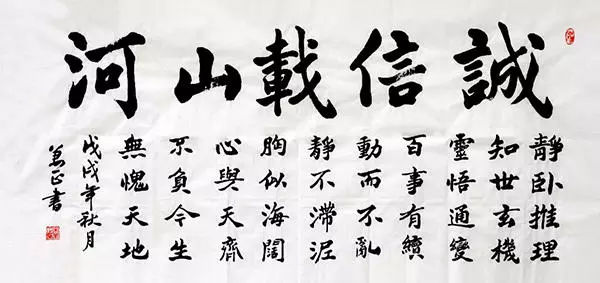 誠信載山河
靜卧推理
知世玄機
靈悟通變
百事有續
動而不亂
靜不滯泥
胸似海闊
心與天齊
不負今生
無愧天地
戊戌年秋月
正書